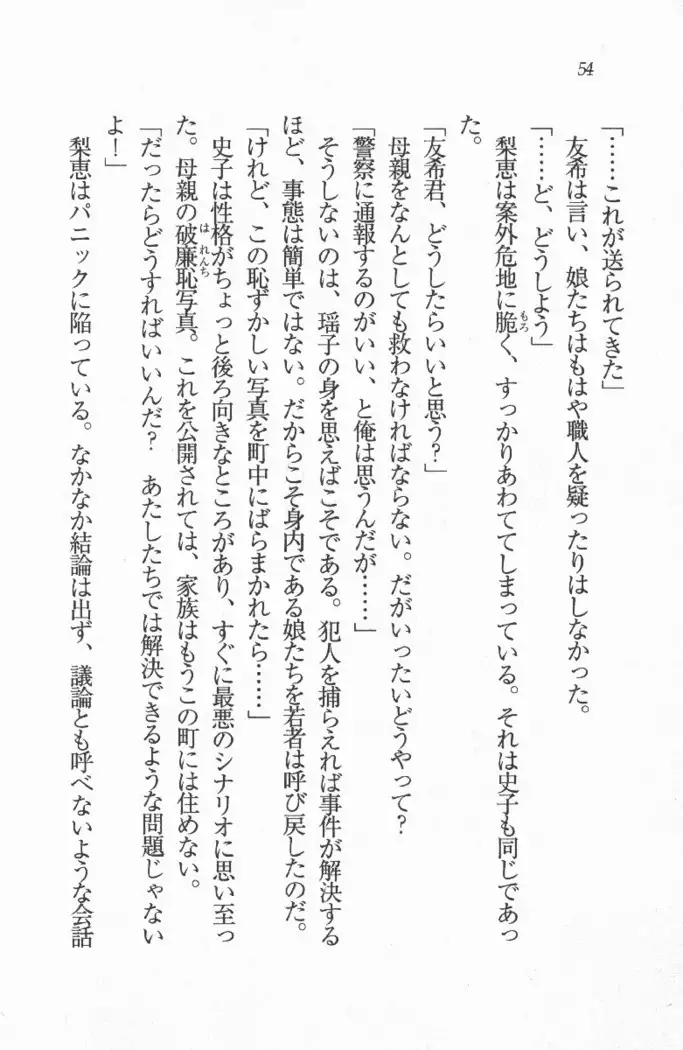 54
「……これが送られてきた」
友希は言い、娘たちはもはや職人を疑ったりはしなかった。
「……ど、どうしよう」
梨恵は案外危地に脆く、すっかりあわててしまっている。それは史子も同じであっ
た。
「友希君、どうしたらいいと思う?」
母親をなんとしても救わなければならない。だがいったいどうやって?
「警察に通報するのがいい、と俺は思うんだが……」
そうしないのは、瑶子の身を思えばこそである。犯人を捕らえれば事件が解決する
ほど、事態は簡単ではない。だからこそ身内である娘たちを若者は呼び戻したのだ。
「けれど、この恥ずかしい写真を町中にばらまかれたら……」
史子は性格がちょっと後ろ向きなところがあり、すぐに最悪のシナリオに思い至っ
た。母親の破廉恥写真。これを公開されては、家族はもうこの町には住めない。
「だったらどうすればいいんだ? あたしたちでは解決できるような問題じゃない
よ!」
梨恵はパニックに陥っている。なかなか結論は出ず、議論とも呼べないような会話
もろ
はれんち